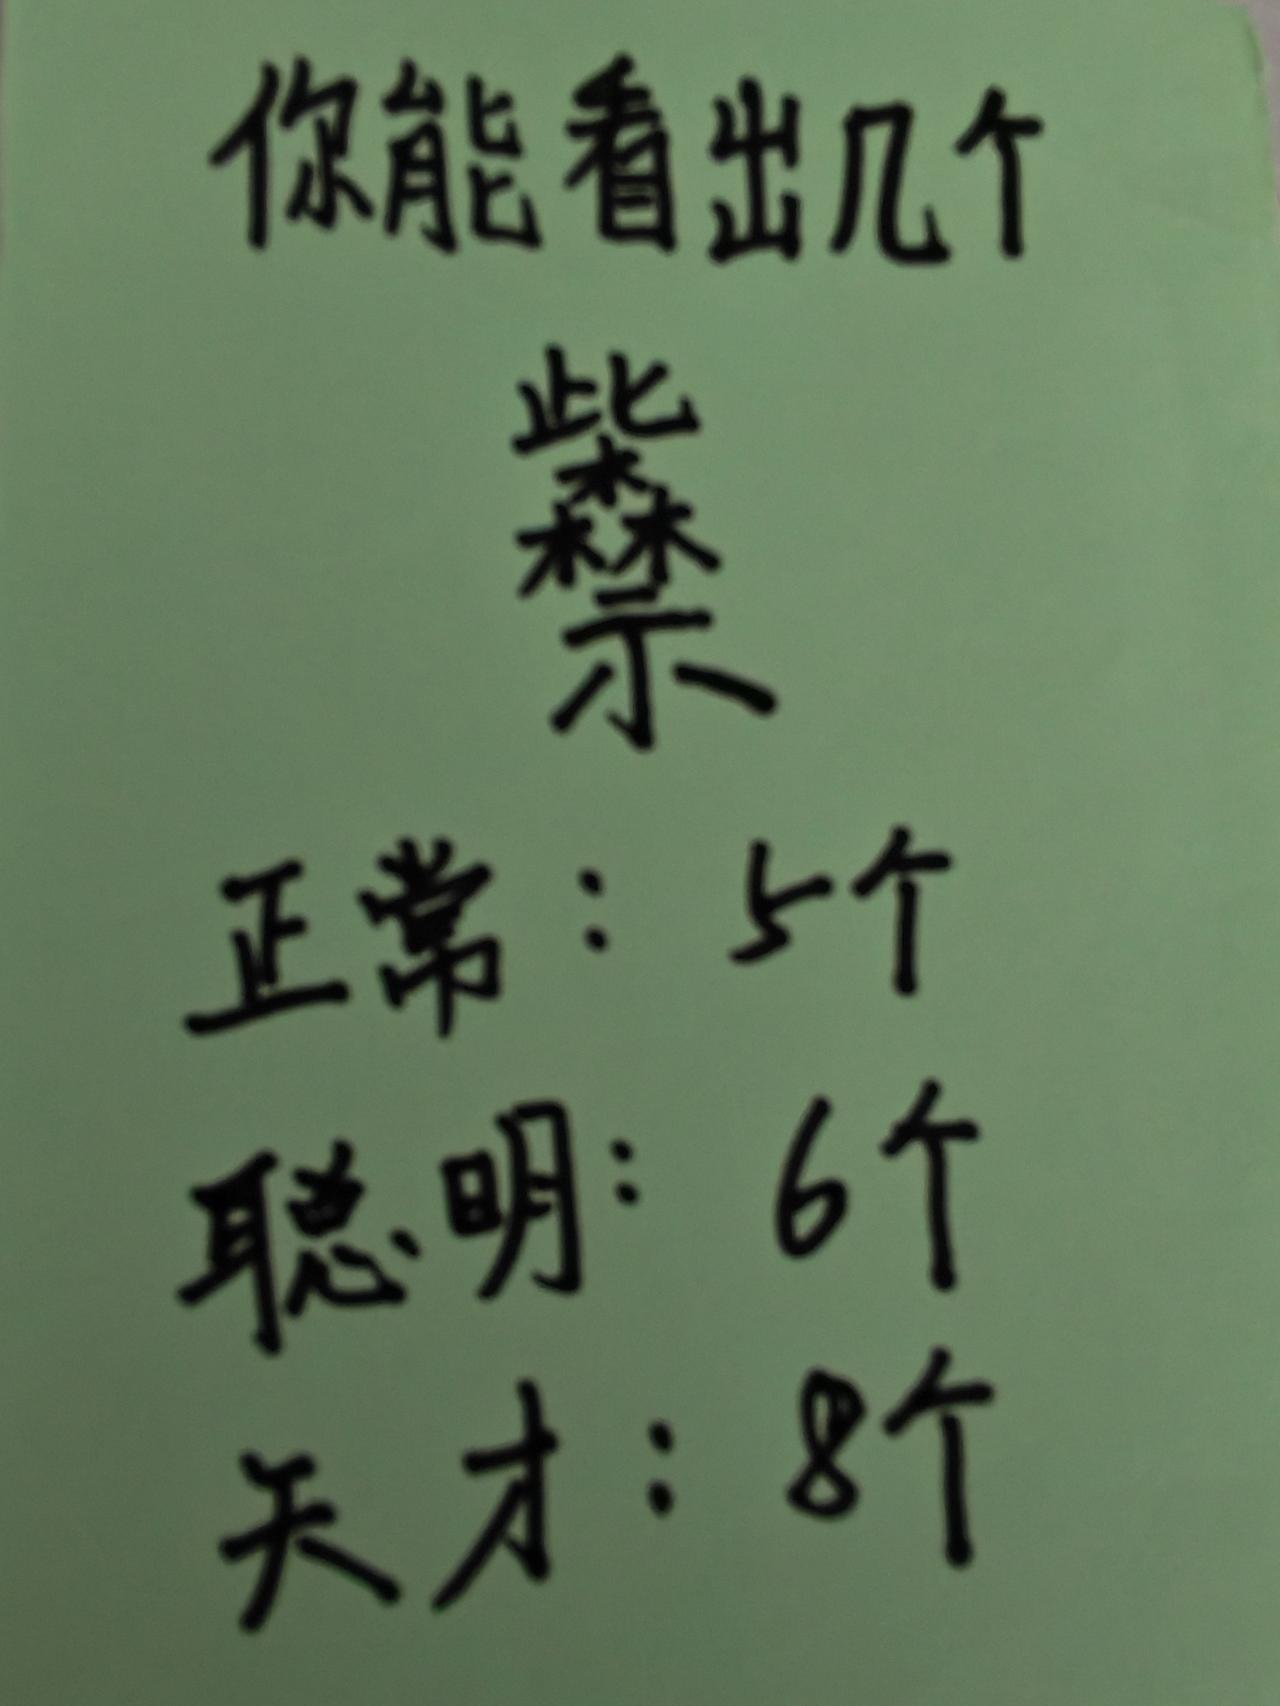 你能看出几个
此
森
示
正常：5个
聪明：6个
天才：8个